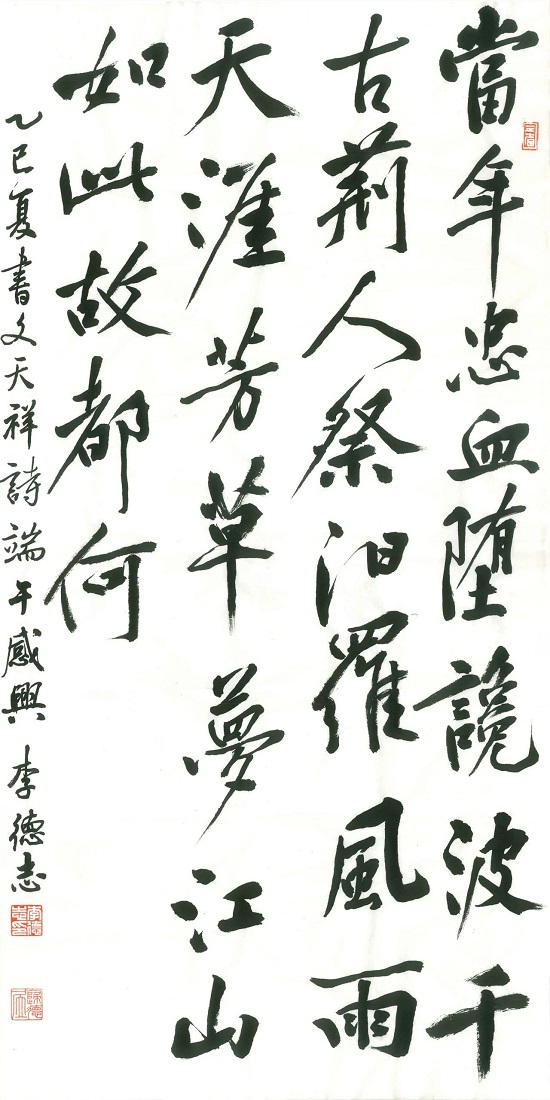 當年忠血堕讒波千
古荆人祭汨羅風雨
天涯芳草夢江山
如此故都何
乙巳夏書文天祥詩端午感興 李德志